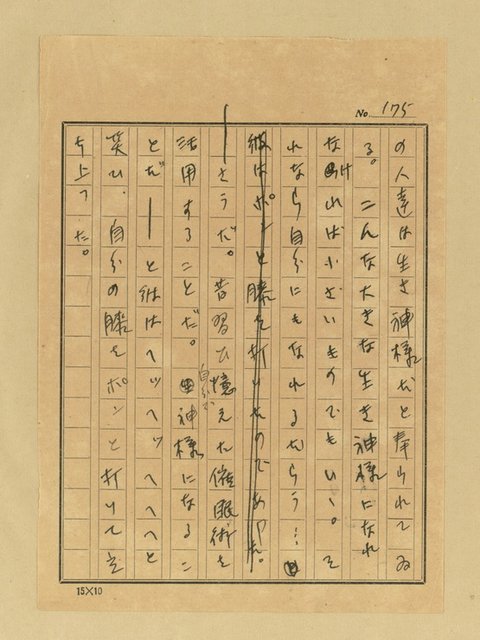 No. 175
の人達は生き神様だと奉られてゐ
る。こんな大きな生き神様になれ
なければ小さいものでもいゝ。そ
れなら自分にもなれるだらう…
彼はポンと膝を打つたのであつた。
——さうだ。昔習ひ憶えた催眠術を
活用することだ。自分が神様になるこ
とだ——と彼はヘッヘッヘヘヘと
笑ひ、自分の膝をポンと打つて立
ち上つた。
15×10